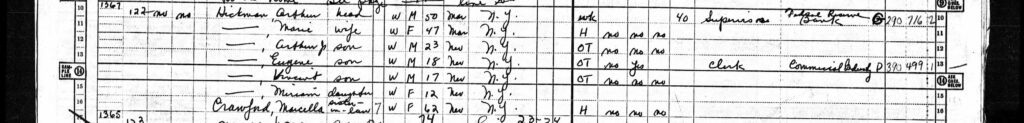 1367 122 no no Hickman Arthur head W M 50 Mar N.Y. wk 40 Supervisor Federal Reserve Bank G 290 716 2
10 —, Marie wife W F 47 Mar N.Y. H no no no 11
—, Arthur J. son W M 23 Nev N.Y. OT no no no 12
SAMPLE LINE —, Eugene son W M 18 Nev N.Y. OT no Yes Clerk Commercial P 390 499 1 13 ASK QUES. BELOW
14 —, Vincent son W M 17 Nev N.Y. OT no no no
15 —, Miriam daughter W F 12 Nev N.Y. 15
1365 16 Crawford, Marcella sister-in-law 7 W F 62 Nev N.Y. H no no no 16
123